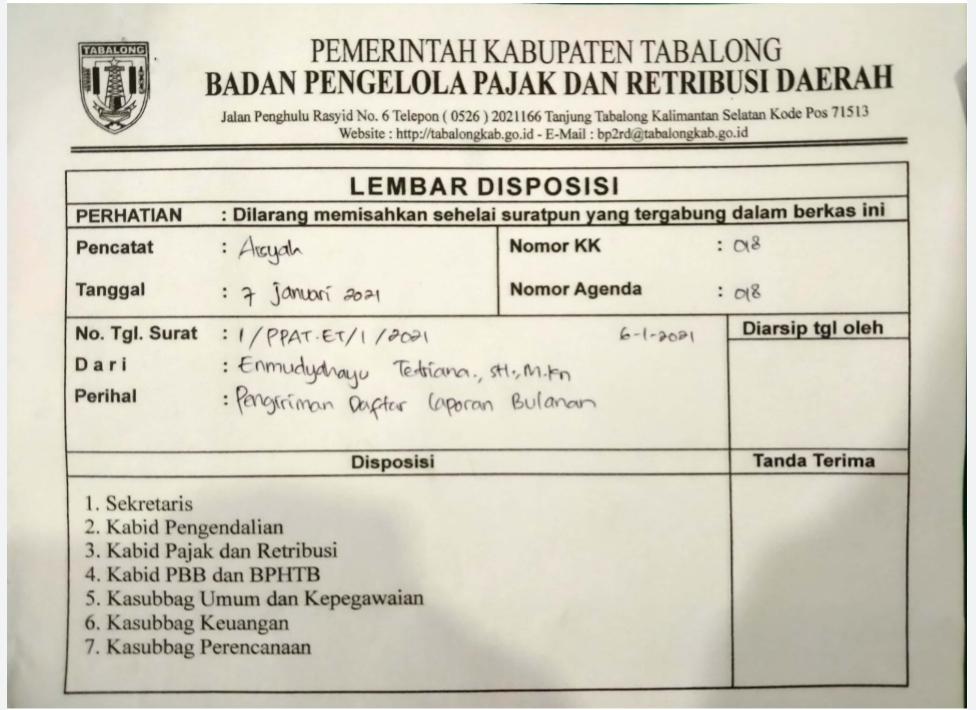 TABALONG
PEMERINTAH KABUPATEN TABALONG
BADAN PENGELOLA PAJAK DAN RETRIBUSI DAERAH
Jalan Penghulu Rasyid No. 6 Telepon ( 0526 ) 2021166 Tanjung Tabalong Kalimantan Selatan Kode Pos 71513
Website : http://tabalongkab.go.id - E-Mail : bp2rd@tabalongkab.go.id
LEMBAR DISPOSISI
PERHATIAN : Dilarang memisahkan sehelai suratpun yang tergabung dalam berkas ini
Pencatat : Aisyah Nomor KK : 018
Tanggal : 7 Januari 2021 Nomor Agenda : 018
No. Tgl. Surat : 1/PPAT.ET/1/2021 6-1-2021 Diarsip tgl oleh
Dari : Enmudydhayu Tedriana., SH., M.Kn
Perihal : Pengiriman Daftar Laporan Bulanan
Disposisi Tanda Terima
1. Sekretaris
2. Kabid Pengendalian
3. Kabid Pajak dan Retribusi
4. Kabid PBB dan BPHTB
5. Kasubbag Umum dan Kepegawaian
6. Kasubbag Keuangan
7. Kasubbag Perencanaan